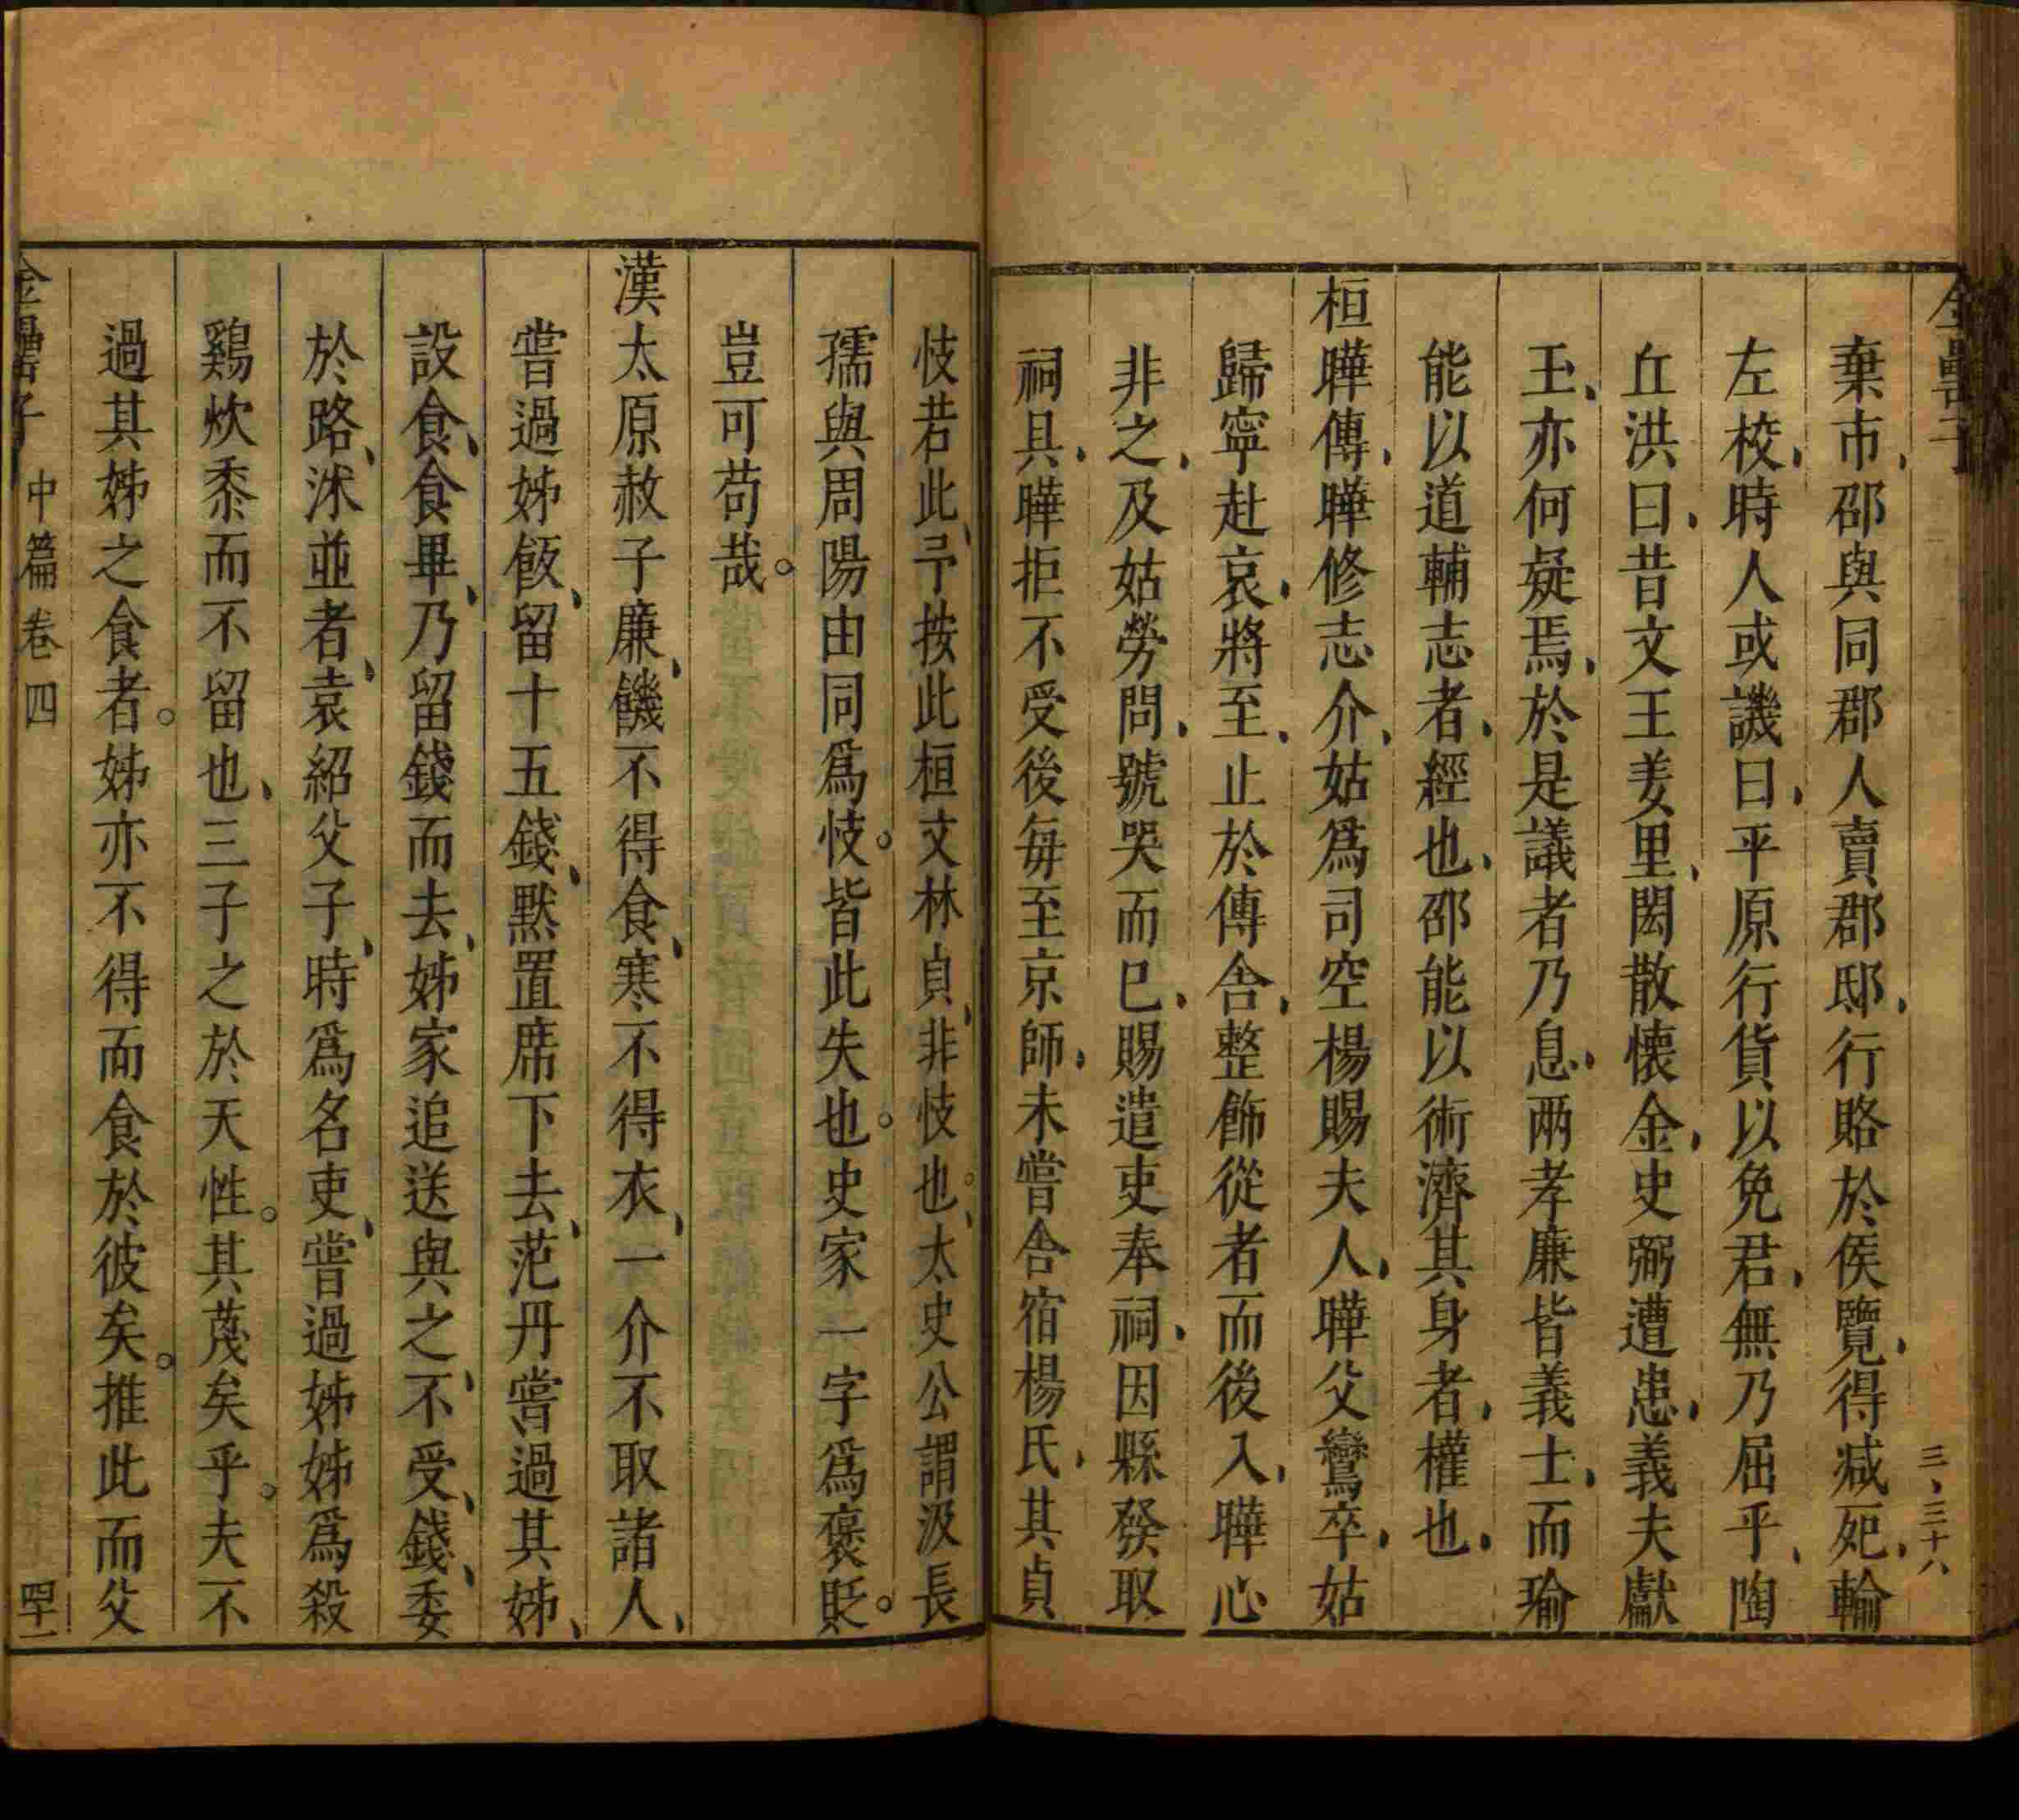 金罍子
三、三十八
棄市、邵與同郡人賣郡邸、行賂於侯覽、得減死、輸
左校、時人或譏曰、平原行貨以免君、無乃屈乎、陶
丘洪曰、昔文王羑里、閎散懷金、史弼遭患、義夫獻
玉、亦何疑焉、於是議者乃息、兩孝廉皆義士、而瑜
能以道輔志者、經也、邵能以術濟其身者、權也、
桓曄傳、曄修志介、姑爲司空楊賜夫人、曄父鸞卒、姑
歸寧赴哀、將至、止於傳舍、整飾從者而後入、曄心
非之、及姑勞問、號哭而已、賜遣吏奉祠、因縣發取
祠具、曄拒不受後每至京師、未嘗舍宿楊氏、其貞
忮若此、予按此桓文林貞、非忮也。太史公謂汲長
孺與周陽由同爲忮。皆此失也。史家一字爲褒貶。
豈可苟哉。
漢太原赦子廉、饑不得食、寒不得衣、一介不取諸人、
嘗過姊飯、留十五錢、默置席下去、范丹嘗過其姊、
設食、食畢、乃留錢而去、姊家追送與之、不受、錢、委
於路、沭並者、袁紹父子、時爲名吏、嘗過姊姊爲殺
鷄炊黍而不留也、三子之於天性。其蔑矣乎。夫不
過其姊之食者。姊亦不得而食於彼矣。推此而父
金罍子 中篇卷四 四十一